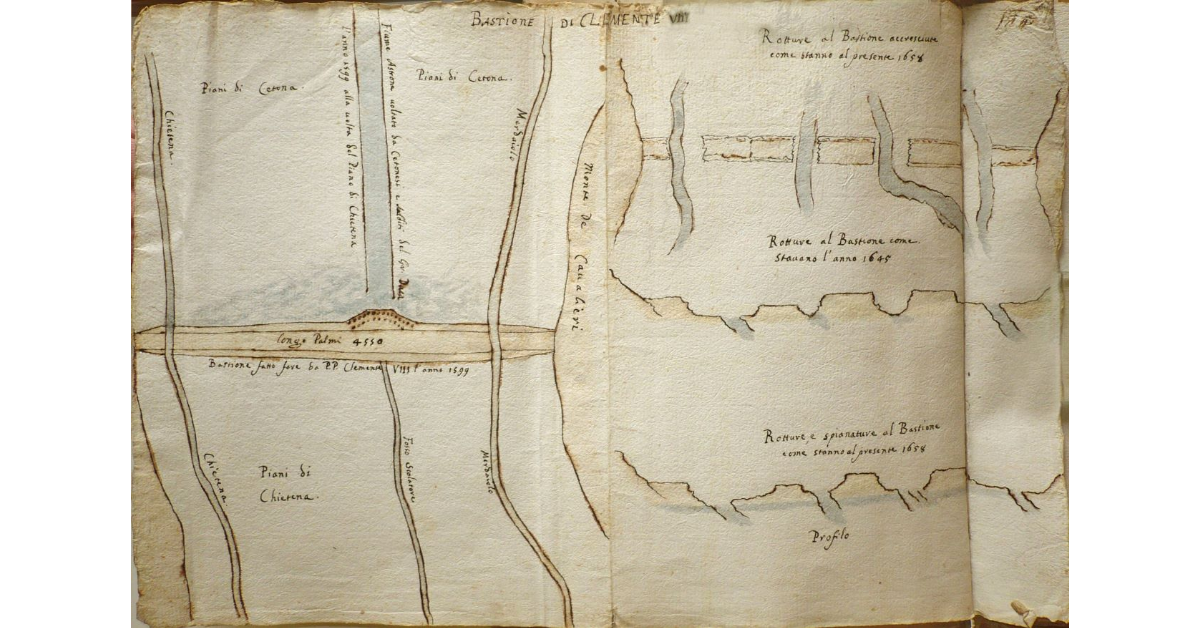 BASTIONE DI CLEMENTE VIII
Piani di Cetona.
Piani di Cetona.
Chietena
l'anno 1599 alla uolta del Piano di Chietena
Fiume Astrone uoltato da Cetonesi e del Gr. Duca
Mordaiolo
Monte de Caualieri
Longo Palmi 4550
Bastione fatto fare da P.P. Clemente VIII l'anno 1599
Chietena
Piani di
Chietena.
Fosso Scolatore
Mordaiolo
Rotture al Bastione accresciute
come stanno al presente 1658
Rotture al Bastione come
stauano l'anno 1645
Rotture, e spianature al Bastione
come stanno al presente 1658
Profilo